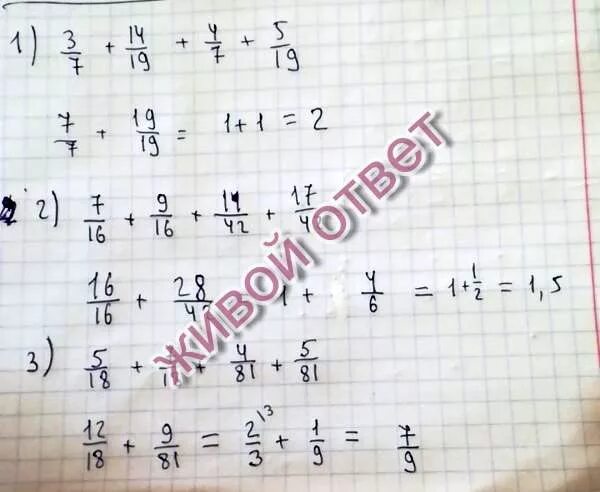 1) 3/7 + 14/19 + 4/7 + 5/19
7/7 + 19/19 = 1+1 = 2
2) 7/16 + 9/16 + 11/42 + 17/4
16/16 + 28/4 1 + 4/6 = 1+1/2 = 1,5
3) 5/18 + + 4/81 + 5/81
12/18 + 9/81 = 2/3 \3 + 1/9 = 7/9
ЖИВОЙ ОТВЕТ